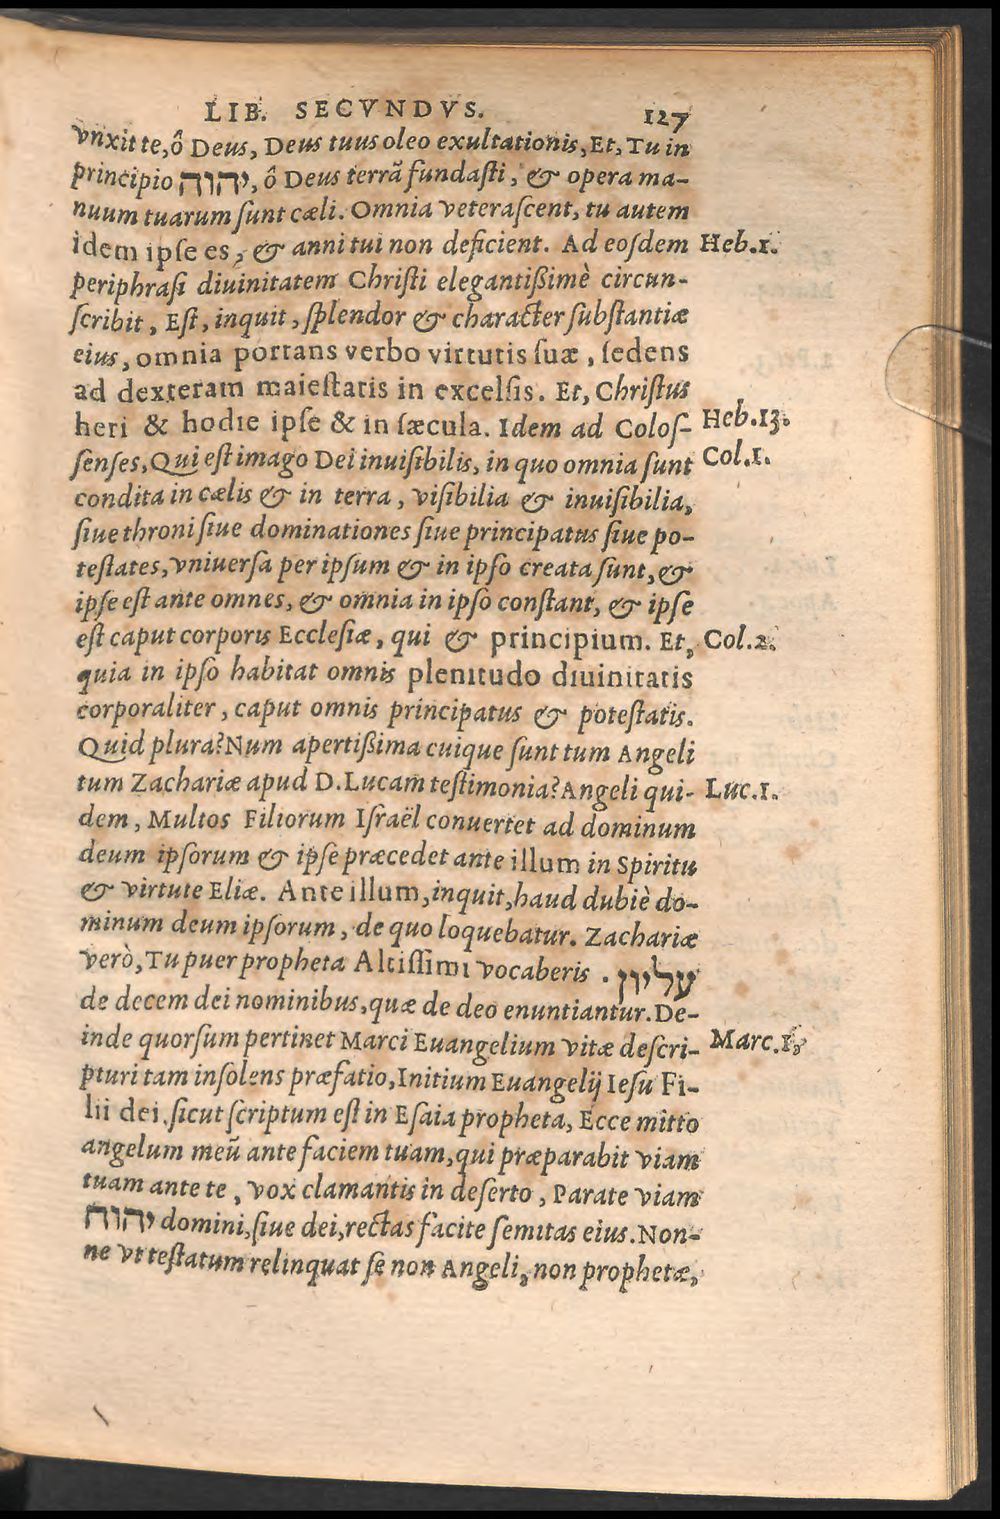 LIB. SECVNDVS. 127
vnxit te, ô Deus, Deus tuus oleo exultationis, Et, Tu in
principio יהוה, ô Deus terrã fundaſti, & opera ma-
nuum tuarum ſunt cæli. Omnia veteraſcent, tu autem
idem ipſe es, & anni tui non deficient. Ad eoſdem Heb.1.
periphraſi diuinitatem Chriſti elegantißimè circun-
ſcribit, Eſt, inquit, ſplendor & character ſubſtantiæ
eius, omnia portans verbo virtutis ſuæ, ſedens
ad dexteram maieſtatis in excelſis. Et, Chriſtus
heri & hodie ipſe & in ſæcula. Idem ad Coloſ- Heb.13.
ſenſes, Qui eſt imago Dei inuiſibilis, in quo omnia ſunt Col.1.
condita in cælis & in terra, viſibilia & inuiſibilia,
ſiue throni ſiue dominationes ſiue principatus ſiue po-
teſtates, vniuerſa per ipſum & in ipſo creata ſunt, &
ipſe eſt ante omnes, & omnia in ipſo conſtant, & ipſe
eſt caput corporis Eccleſiæ, qui & principium. Et, Col.2.
quia in ipſo habitat omnis plenitudo diuinitatis
corporaliter, caput omnis principatus & poteſtatis.
Quid plura? Num apertißima cuique ſunt tum Angeli
tum Zachariæ apud D. Lucam teſtimonia? Angeli qui- Luc.1.
dem, Multos Filiorum Iſraël conuertet ad dominum
deum ipſorum & ipſe præcedet ante illum in Spiritu
& virtute Eliæ. Ante illum, inquit, haud dubiè do-
minum deum ipſorum, de quo loquebatur. Zachariæ
verò, Tu puer propheta Altiſſimi vocaberis . עליון
de decem dei nominibus, quæ de deo enuntiantur. De-
inde quorſum pertinet Marci Euangelium vitæ deſcri- Marc.1.
pturi tam inſolens præfatio, Initium Euangelij Ieſu Fi-
lii dei, ſicut ſcriptum eſt in Eſaia propheta, Ecce mitto
angelum meũ ante faciem tuam, qui præparabit viam
tuam ante te, vox clamantis in deſerto, Parate viam
יהוה domini, ſiue dei, rectas facite ſemitas eius. Non-
ne vt teſtatum relinquat ſe non Angeli, non prophetæ,